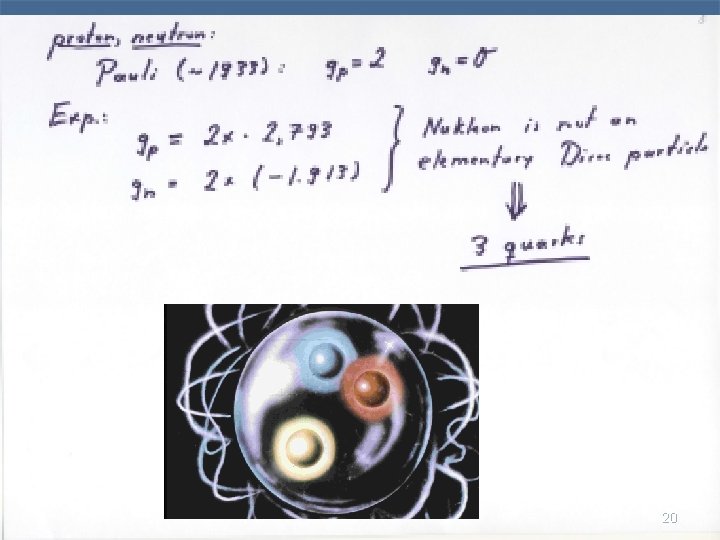 3
proton, neutron:
Pauli (~1933): gp = 2 gn = 0
Exp.:
gp = 2x · 2,793
gn = 2x (-1.913)
} Nukleon is not an
elementary Dirac particle
⇓
3 quarks
20